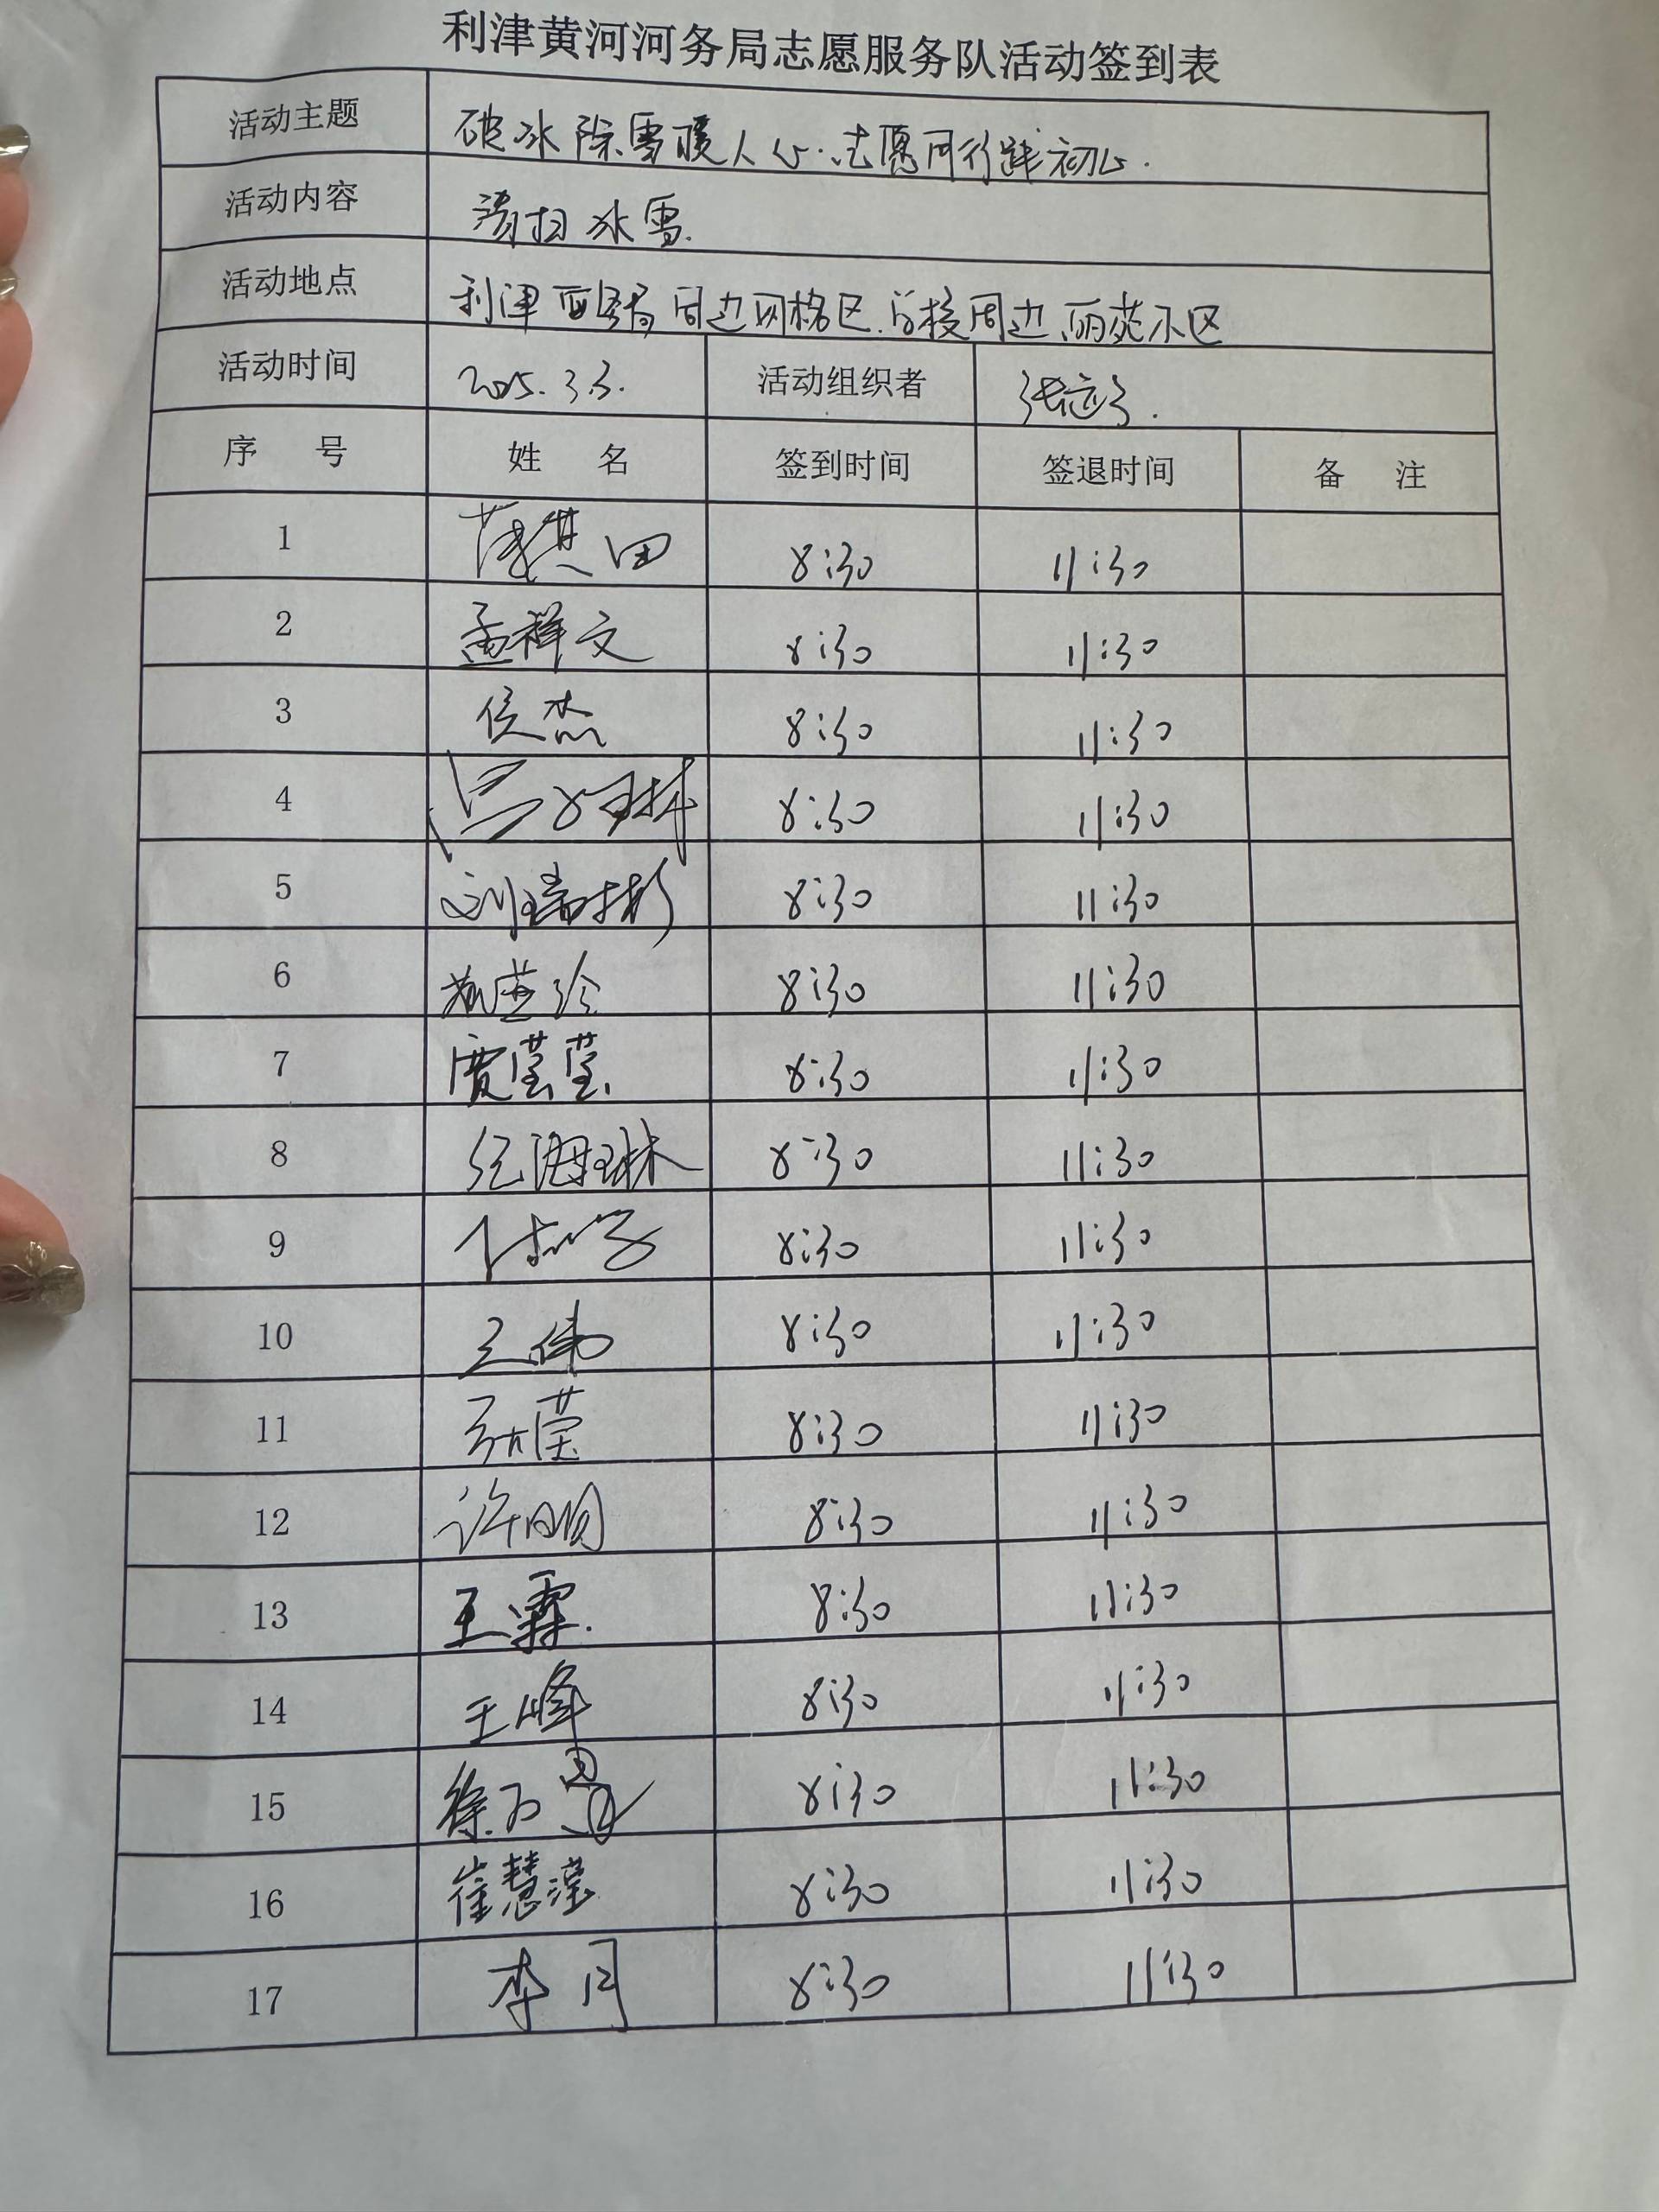 利津黄河河务局志愿服务队活动签到表
活动主题 破冰除雪暖人心·志愿同行践初心.
活动内容 清扫冰雪.
活动地点 利津 周边网格区、 校周边、丽苑小区
活动时间 2025.3.3. 活动组织者 张
序 号 姓 名 签到时间 签退时间 备 注
1 8:30 11:30
2 孟祥文 8:30 11:30
3 侯杰 8:30 11:30
4 8:30 11:30
5 刘瑞彬 8:30 11:30
6 8:30 11:30
7 贾莹莹 8:30 11:30
8 纪海琳 8:30 11:30
9 8:30 11:30
10 王伟 8:30 11:30
11 莹 8:30 11:30
12 许明 8:30 11:30
13 王霖. 8:30 11:30
14 王峰 8:30 11:30
15 徐 8:30 11:30
16 崔慧滢 8:30 11:30
17 李月 8:30 11:30